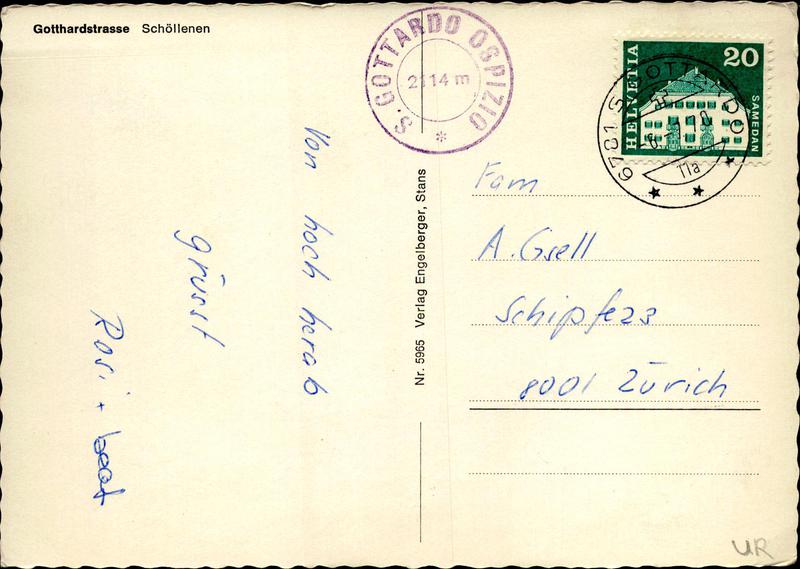 Gotthardstrasse Schöllenen
S. GOTTARDO OSPIZIO
2114 m
*
HELVETIA
20
SAMEDAN
6781 S. GOTTARDO
11a
Von hoch herab
grüsst
Rosi + beat
Nr. 5965 Verlag Engelberger, Stans
Fam
A. Gsell
Schipfe 23
8001 Zürich
UR